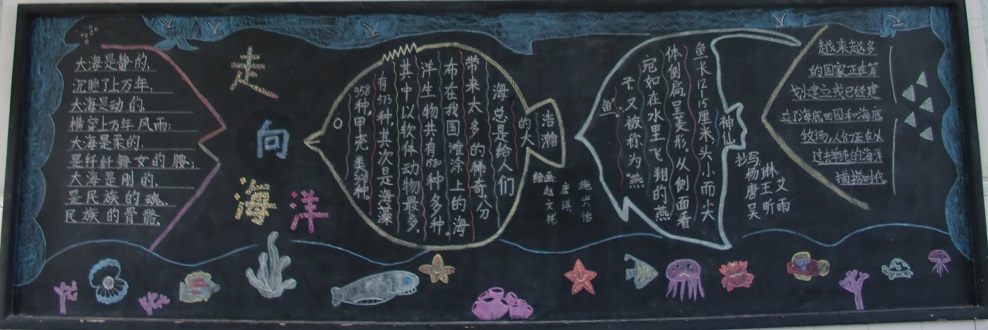 大海是静的,
沉睡了上万年,
大海是动的,
横空上万年风雨;
大海是柔的,
是纤纤舞女的腰,
大海是刚的,
是民族的魂,
民族的骨骼。
走向海洋
浩瀚
的大
海总是给人们
带来太多的神奇,分
布在我国滩涂上的海
洋生物共有1580种多种。
其中以软体动物最多,
有513种其次是海藻
358种,甲壳类308种。
绘画
赵文彬
神仙
鱼
鱼长12-15厘米,头小而尖
体侧扁呈菱形。从侧面看
宛如在水里飞翔的燕
子又被称为"燕
鱼"
抄写
杨王文
唐昕雨
吴
越来越多
的国家正在筹
划建立或已经建
立了海底田园和海底
牧场,人们正在从
过去
捕捞时代